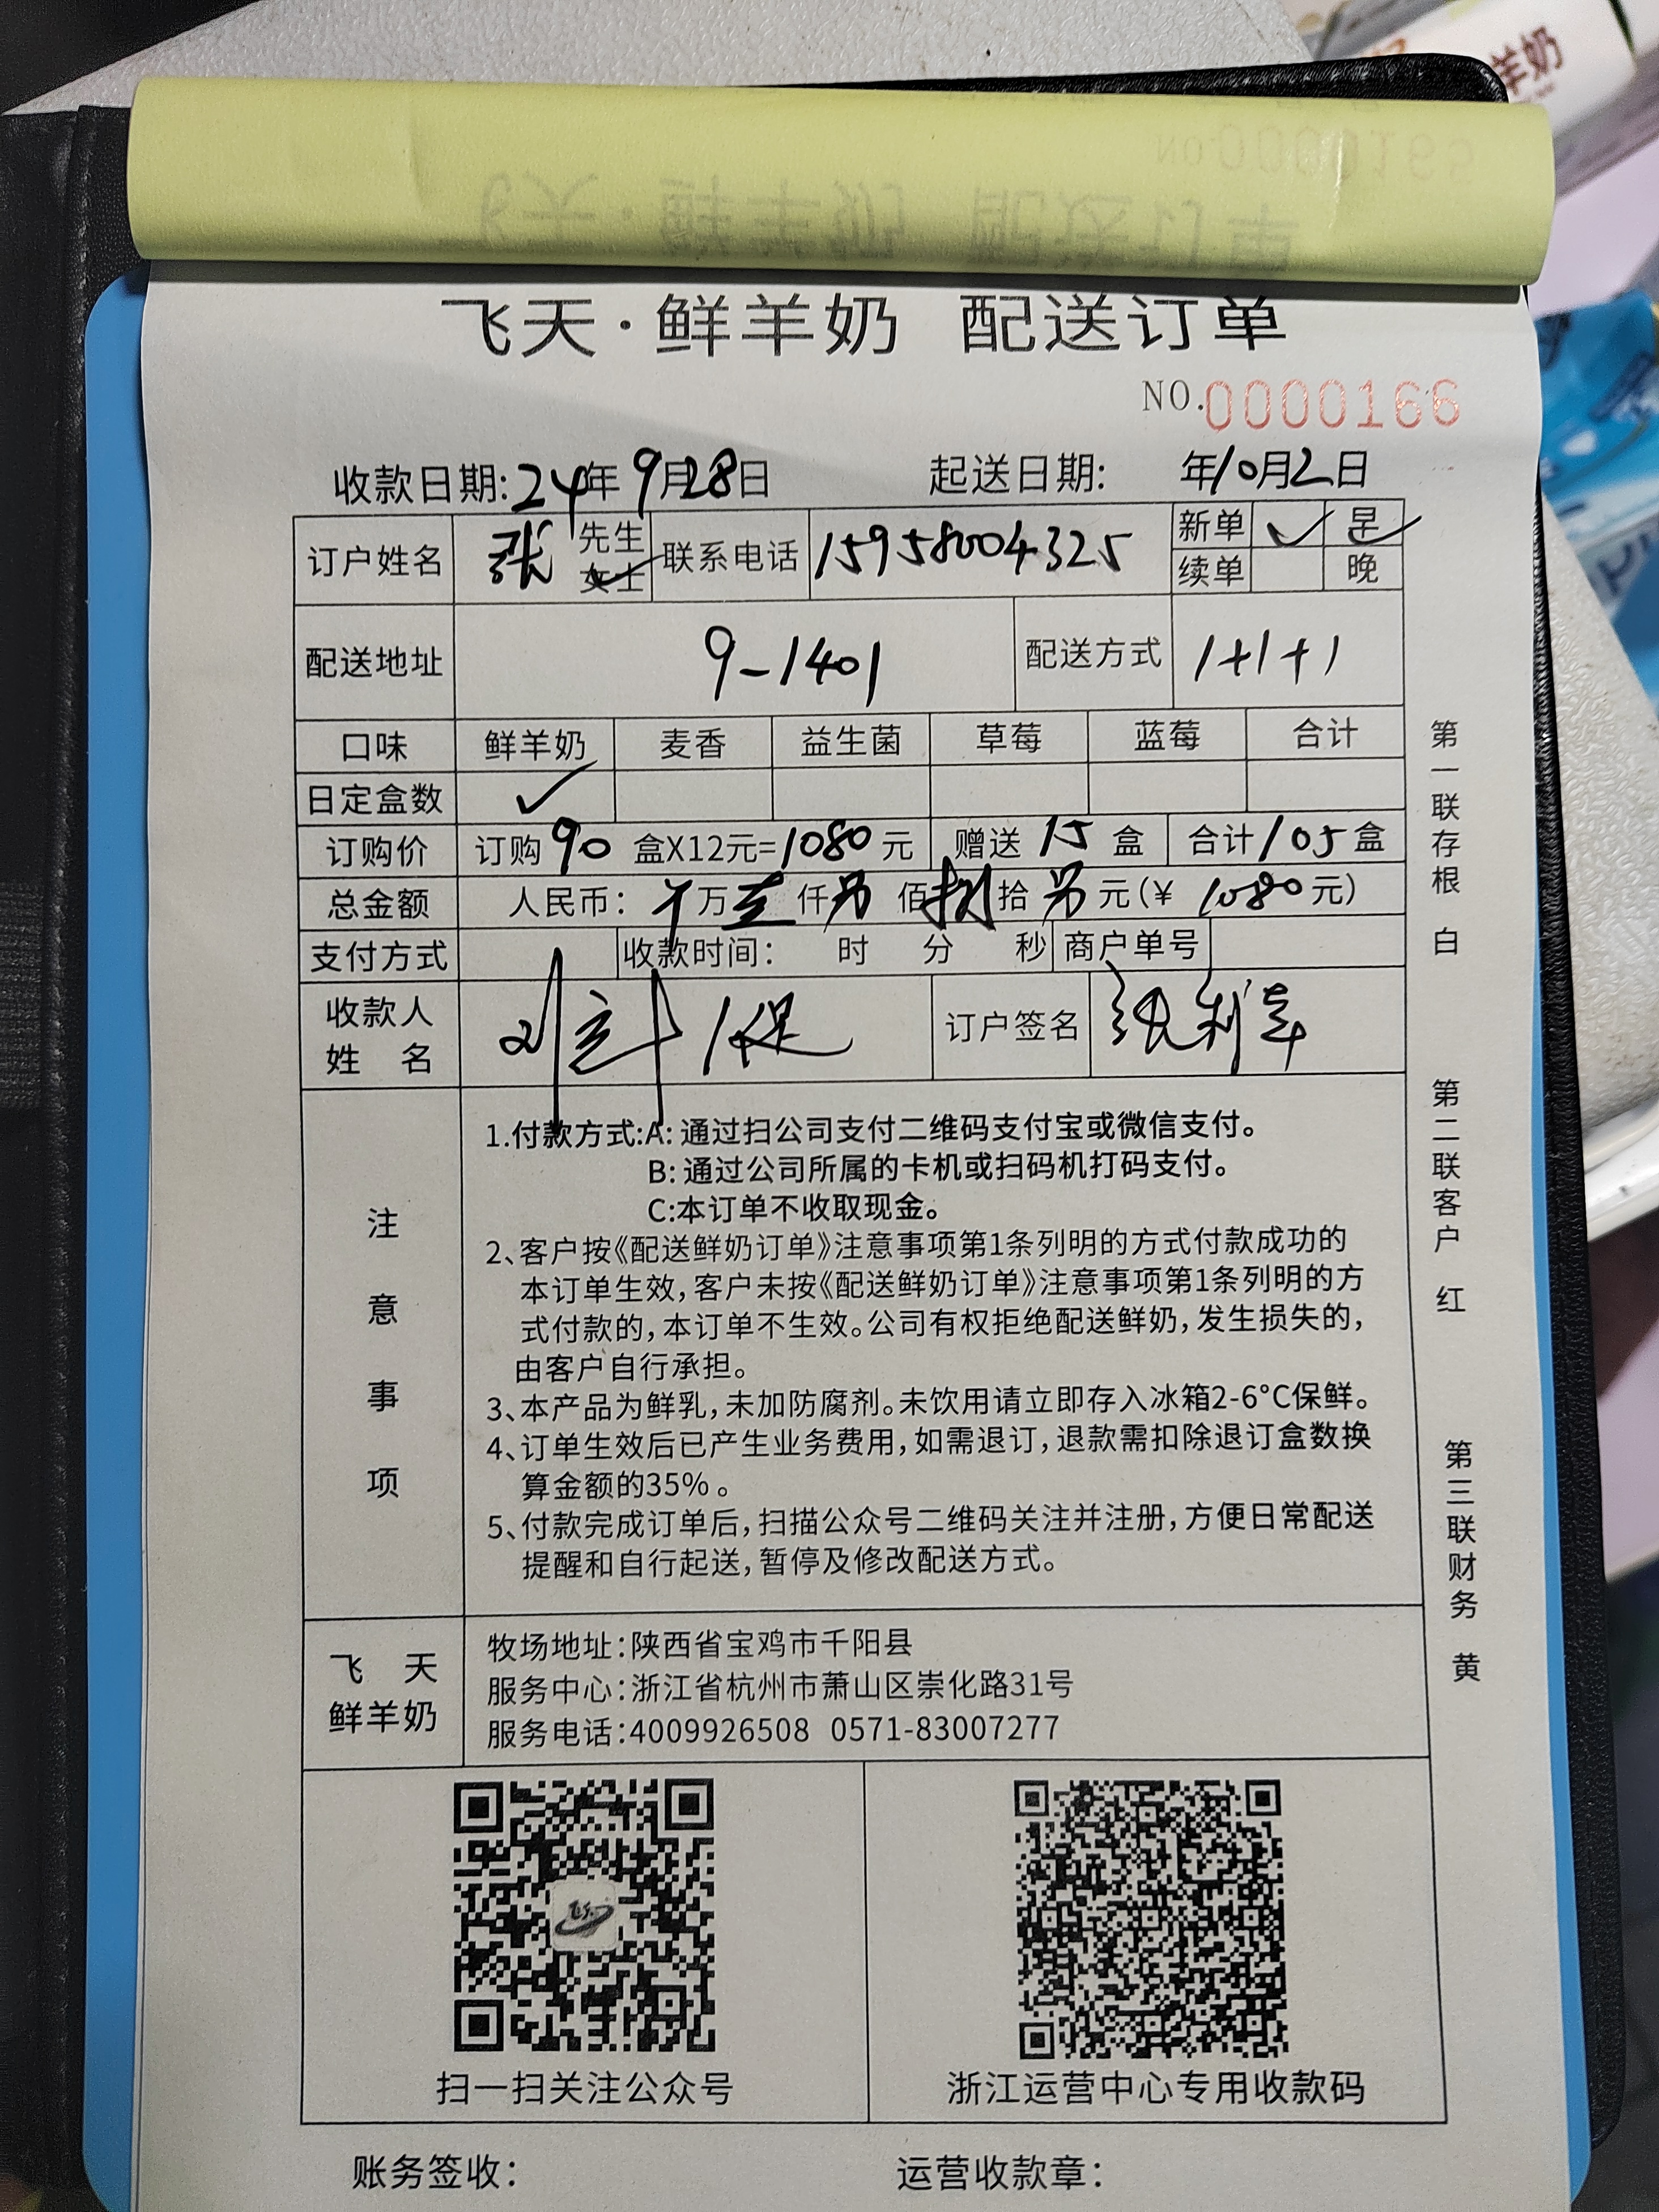 羊奶
飞天·鲜羊奶 配送订单
NO.0000166
收款日期:24年9月28日 起送日期: 年10月2日
订户姓名 张 先生 女士 ✓ 联系电话 15958004325 新单 ✓ 早 ✓
续单 晚
配送地址 9-1401 配送方式 1+1+1
口味 鲜羊奶 麦香 益生菌 草莓 蓝莓 合计
日定盒数 ✓
订购价 订购 90 盒X12元=1080元 赠送 15 盒 合计 105 盒
总金额 人民币: 万 仟 佰 捌 拾 元(¥ 1080元)
支付方式 收款时间: 时 分 秒 商户单号
收款人
姓 名
订户签名
注意事项
1.付款方式:A:通过扫公司支付二维码支付宝或微信支付。
B:通过公司所属的卡机或扫码机打码支付。
C:本订单不收取现金。
2、客户按《配送鲜奶订单》注意事项第1条列明的方式付款成功的
本订单生效,客户未按《配送鲜奶订单》注意事项第1条列明的方
式付款的,本订单不生效。公司有权拒绝配送鲜奶,发生损失的,
由客户自行承担。
3、本产品为鲜乳,未加防腐剂。未饮用请立即存入冰箱2-6°C保鲜。
4、订单生效后已产生业务费用,如需退订,退款需扣除退订盒数换
算金额的35%。
5、付款完成订单后,扫描公众号二维码关注并注册,方便日常配送
提醒和自行起送,暂停及修改配送方式。
飞 天
鲜羊奶
牧场地址:陕西省宝鸡市千阳县
服务中心:浙江省杭州市萧山区崇化路31号
服务电话:4009926508 0571-83007277
扫一扫关注公众号 浙江运营中心专用收款码
账务签收: 运营收款章:
第一联存根 白
第二联客户 红
第三联财务 黄